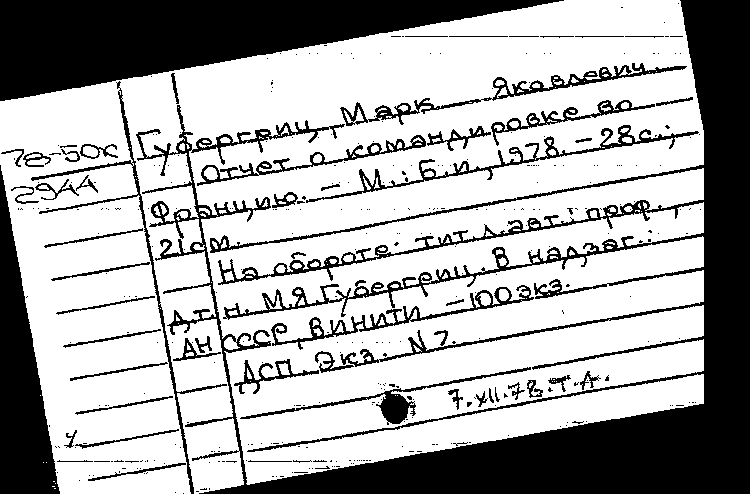 78-50к
2944
Губергриц, Марк Яковлевич.
Отчет о командировке во
Францию. – М.: Б.и., 1978. – 28с.;
21см.
На обороте тит.л.авт.: проф.,
д.т.н. М.Я.Губергриц. В надзаг.:
АН СССР, ВИНИТИ. – 100 экз.
ДСП. Экз. N 7.
7.XII.78. Т.А.